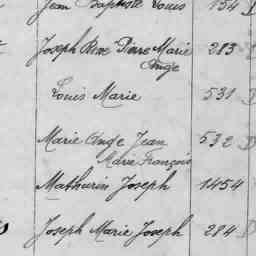 Jean Baptiste Louis 154
Joseph René Pierre Marie 283
Ange
Louis Marie 531
Marie Ange Jean 532
Marie François
Mathurin Joseph 1454
Joseph Marie Joseph 284